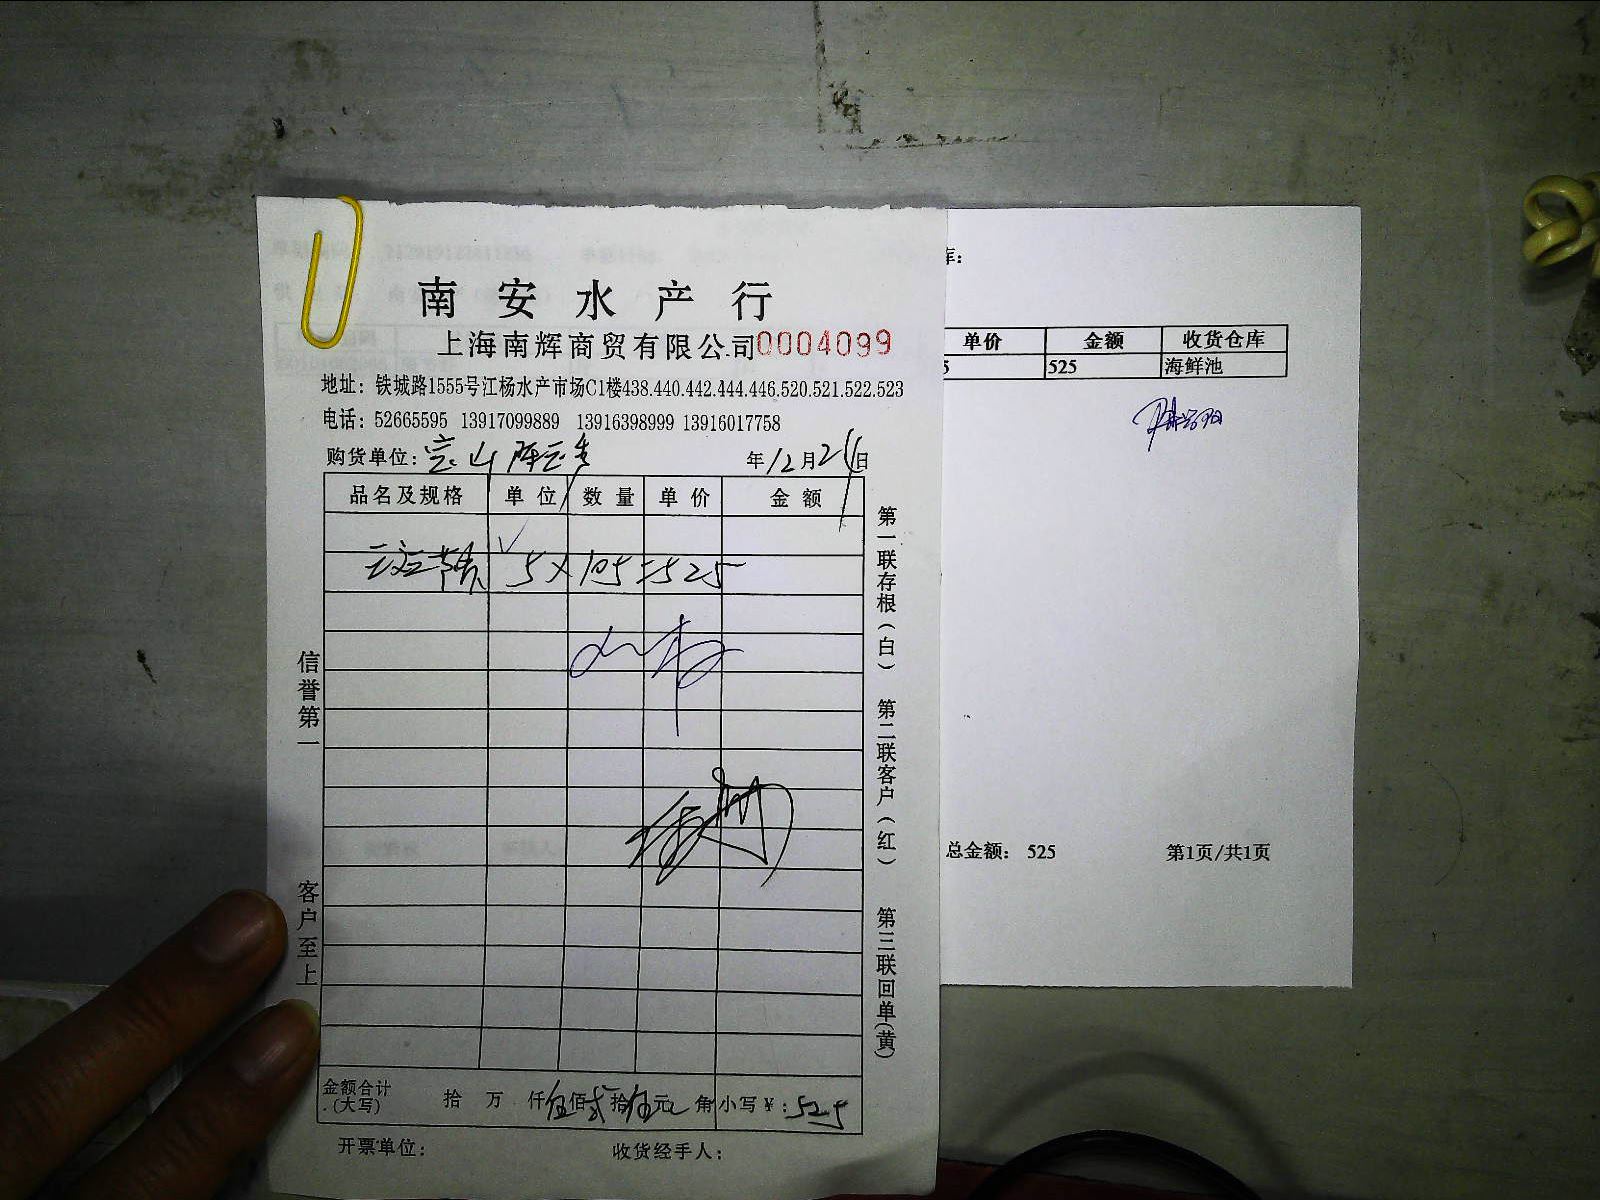 南安水产行
上海南辉商贸有限公司 0004099
地址：铁城路1555号江杨水产市场C1楼438.440.442.444.446.520.521.522.523
电话：52665595 13917099889 13916398999 13916017758
购货单位：宝山 年12月21日
品名及规格 单位 数量 单价 金额
5×105=525
金额合计(大写) 拾 万 仟伍佰贰拾伍元 角 小写￥：525
开票单位： 收货经手人：
信誉第一 客户至上
第一联存根(白) 第二联客户(红) 第三联回单(黄)
库：
单价 金额 收货仓库
5 525 海鲜池
总金额： 525 第1页/共1页